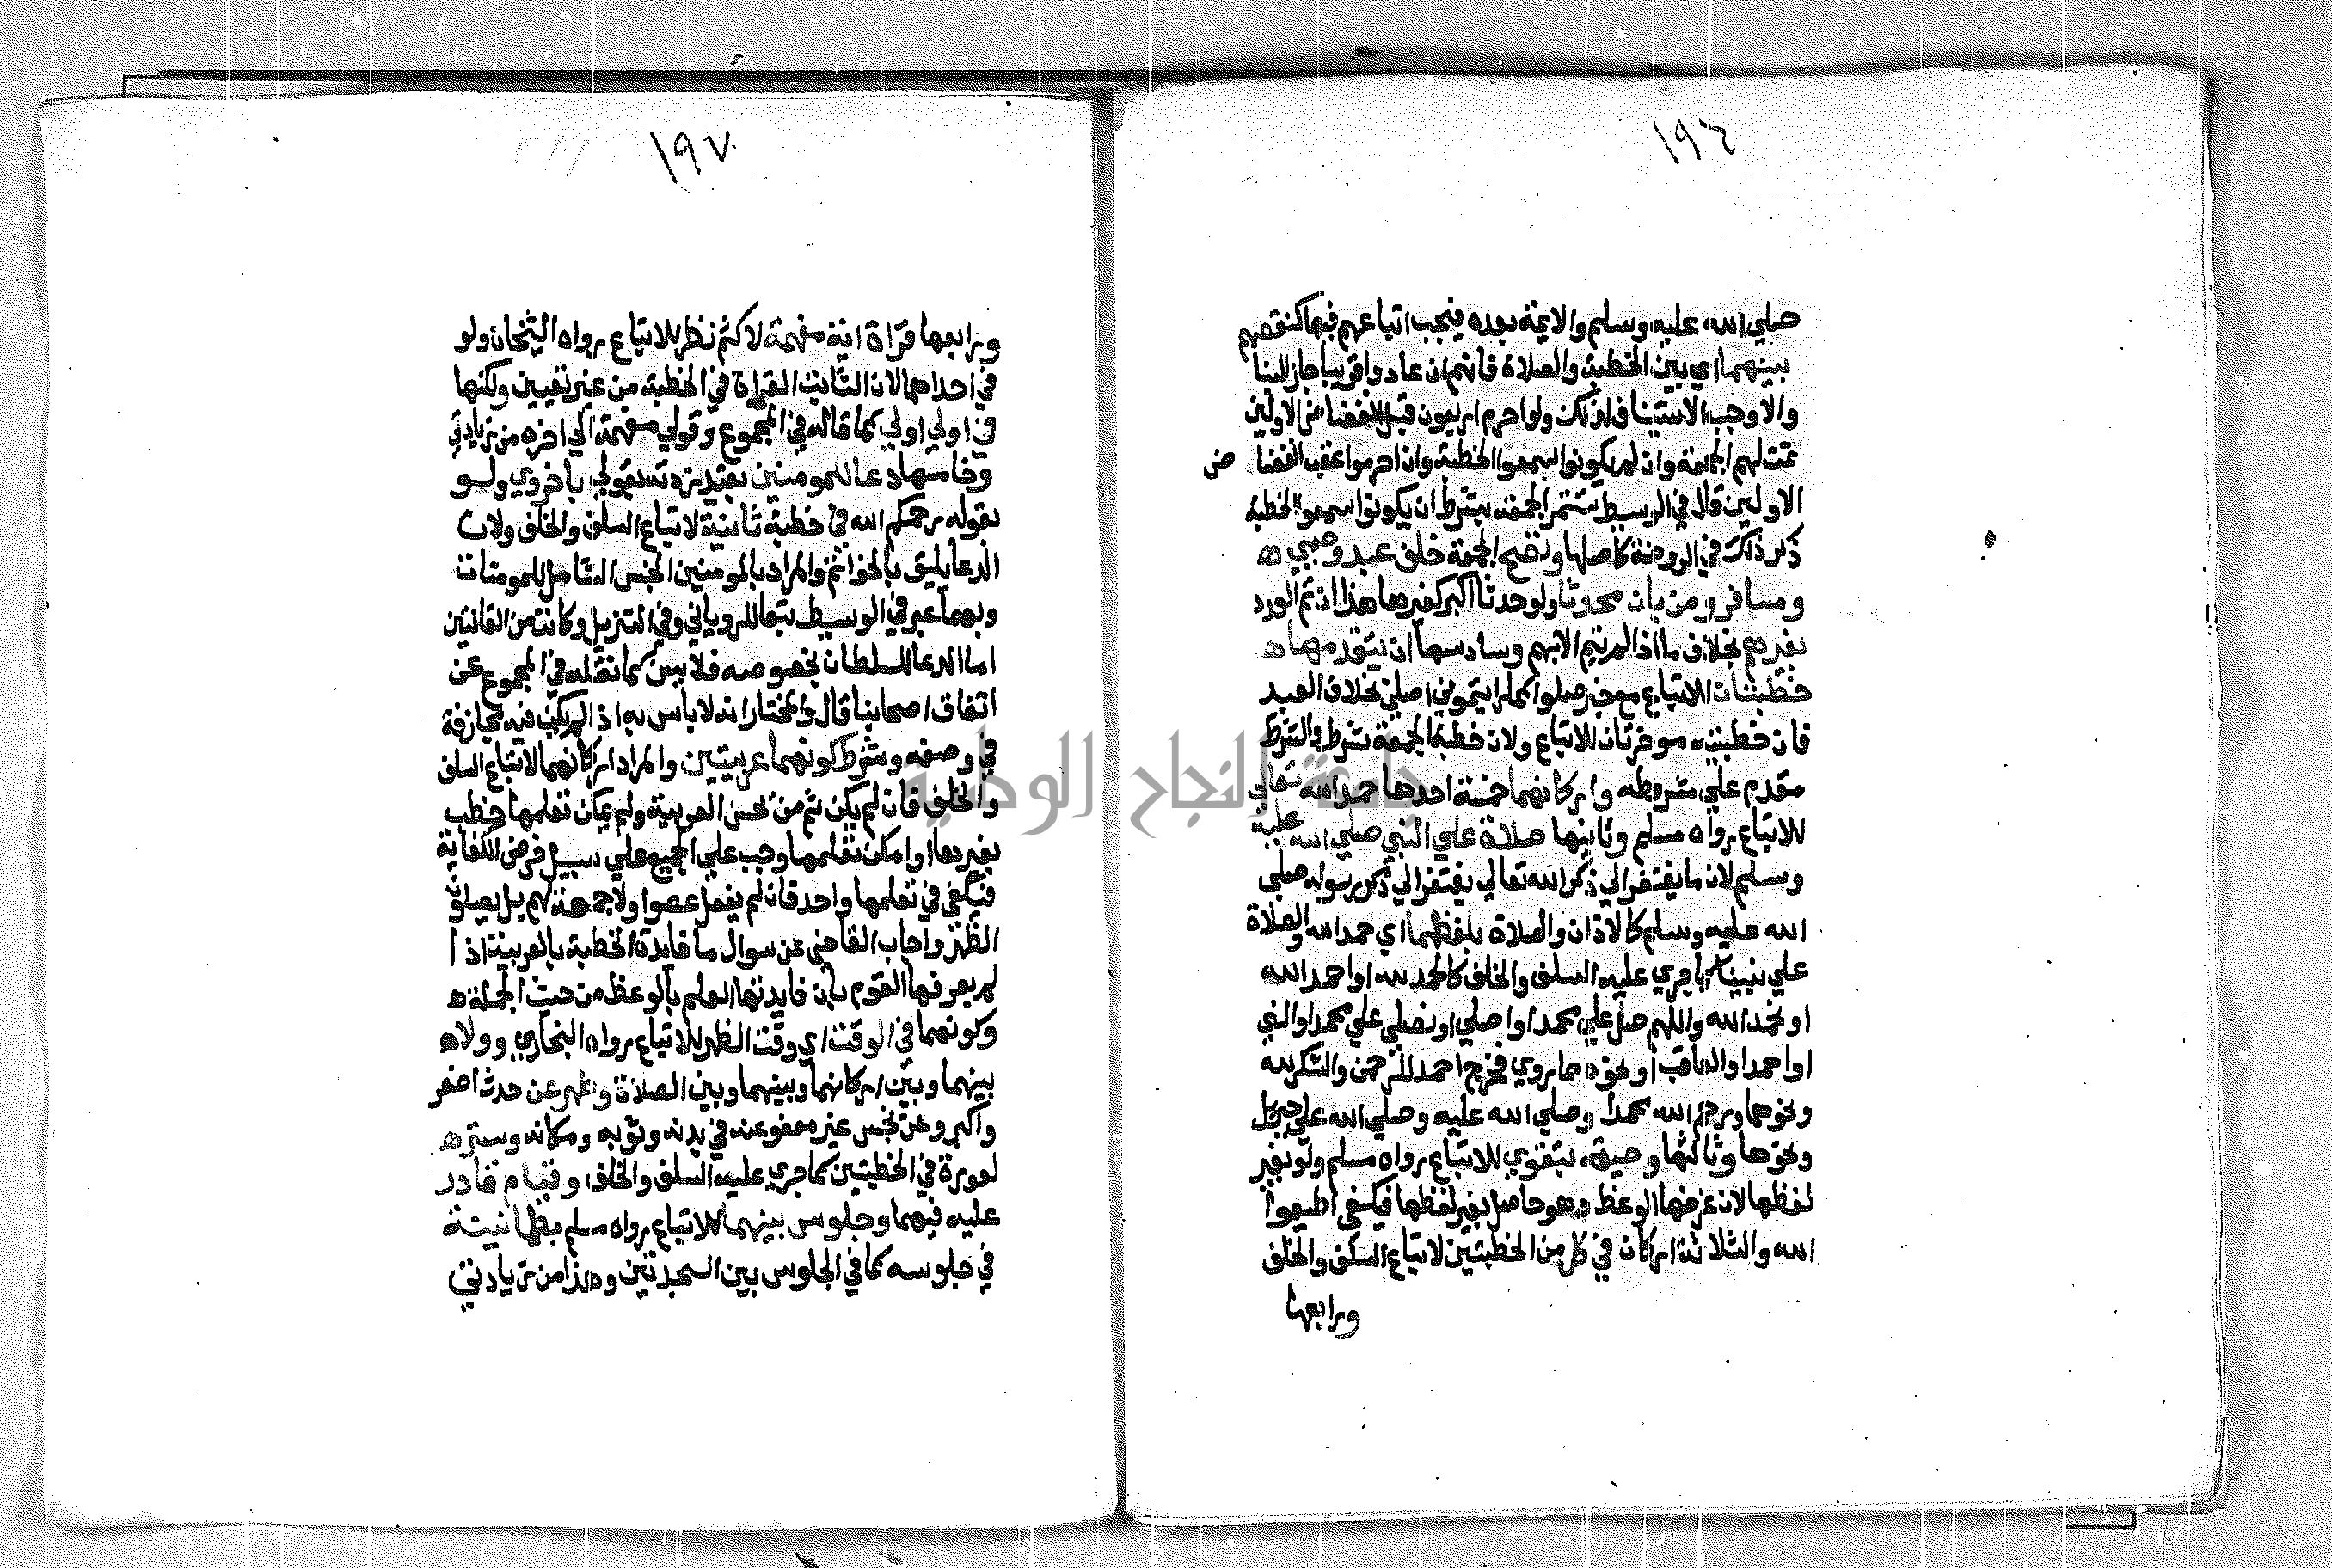 ١٩٦
صلي الله عليه وسلم والايمة بعده فيجب اتباعهم فيها كنقصهم
بينهما اي بين الخطبة والصلاة فانهم ان عادوا قريبا جاز البنا
والا وجب الاستيناف لذلك ولو احرم اربعون قبل انفضاض الاولين
تمت لهم الجمعة وان لم يكونوا سمعوا الخطبة وان احرموا عقب انفضا ض
الاولين قال في الوسيط تستمر الجمعة بشرط ان يكونوا سمعوا الخطبة
ذكر ذلك في الروضة كاصلها وتصح الجمعة خلف عبد وصبي
ومسافر ومن بان محدثا ولو حدثا اكبر كغيرها هذا ان تم العدد
بغيرهم بخلاف ما اذا لم يتم الا بهم وسادسها ان يتقدمها
خطبتان للاتباع مع خبر صلوا كما رايتموني اصلي بخلاف العيد
فان خطبتيه موخرتان للاتباع ولان خطبة الجمعة شرط والشرط
مقدم علي مشروطه واركانهما خمسة احدها حمد الله تعالي
للاتباع رواه مسلم وثانيها صلاة علي النبي صلي الله عليه
وسلم لان ما يفتقر الي ذكر الله تعالي يفتقر الي ذكر رسوله صلي
الله عليه وسلم كالاذان والصلاة بلفظهما اي حمد الله والصلاة
علي نبينا كما جري عليه السلف والخلف كالحمد لله او احمد الله
او نحمد الله واللهم صل علي محمد او اصلي او نصلي علي محمد او النبي
او احمد او العاقب او نحوه مما روي فخرج احمد للرحمن والشكر لله
ونحوها ورحم الله محمدا وصلي الله عليه وصلي الله علي جبريل
ونحوها وثالثها وصية بتقوي للاتباع رواه مسلم ولو بغير
لفظها لان غرضها الوعظ وهو حاصل بغير لفظها فيكفي اطيعوا
الله والثلاثة اركان في كل من الخطبتين لاتباع السلف والخلف
ورابعها
١٩٧
ورابعها قراة اية مفهمة لا كثم نظر للاتباع رواه الشيخان ولو
في احداهما لان الثابت القراة في الخطبة من غير تعيين ولكنها
في اولي اولي كما قاله في المجموع وقولي مفهمة الي اخره من زيادتي
وخامسها دعا للمومنين بقيد زدته بقولي باخروي ولو
بقوله رحمكم الله في خطبة ثانية لاتباع السلف والخلف ولان
الدعا يليق بالخواتم والمراد بالمومنين الجنس الشامل للمومنات
وبهما عبر في الوسيط تبعا للروياني وفي التنزيل وكانت من القانتين
اما الدعا للسلطان بخصوصه فلا يسن كما نقله في المجموع عن
اتفاق اصحابنا قال والمختار انه لا باس به اذا لم يكن فيه مجازفة
في وصفه وشرط كونهما عربيتين والمراد اركانهما لاتباع السلف
والخلف فان لم يكن ثم من يحسن العربية ولم يمكن تعلمها خطب
بغيرها او امكن تعلمها وجب علي الجميع علي سبيل فرض الكفاية
فيكفي في تعلمها واحد فان لم يفعل عصوا ولا جمعة لهم بل يصلون
الظهر واجاب القاضي عن سوال ما فايدة الخطبة بالعربية اذا
لم يعرفها القوم بان فايدتها العلم بالوعظ من حيث الجملة
وكونهما في الوقت اي وقت الظهر للاتباع رواه البخاري وولاه
بينهما وبين اركانهما وبينهما وبين الصلاة وطهر عن حدث اصغر
واكبر وعن نجس غير معفو عنه في بدنه وثوبه ومكانه وستر
لعورة في الخطبتين كما جري عليه السلف والخلف وقيام قادر
عليه فيهما وجلوس بينهما للاتباع رواه مسلم بطمانينة
في جلوسه كما في الجلوس بين السجدتين وهذا من زيادتي
جامعة النجاح الوطنية